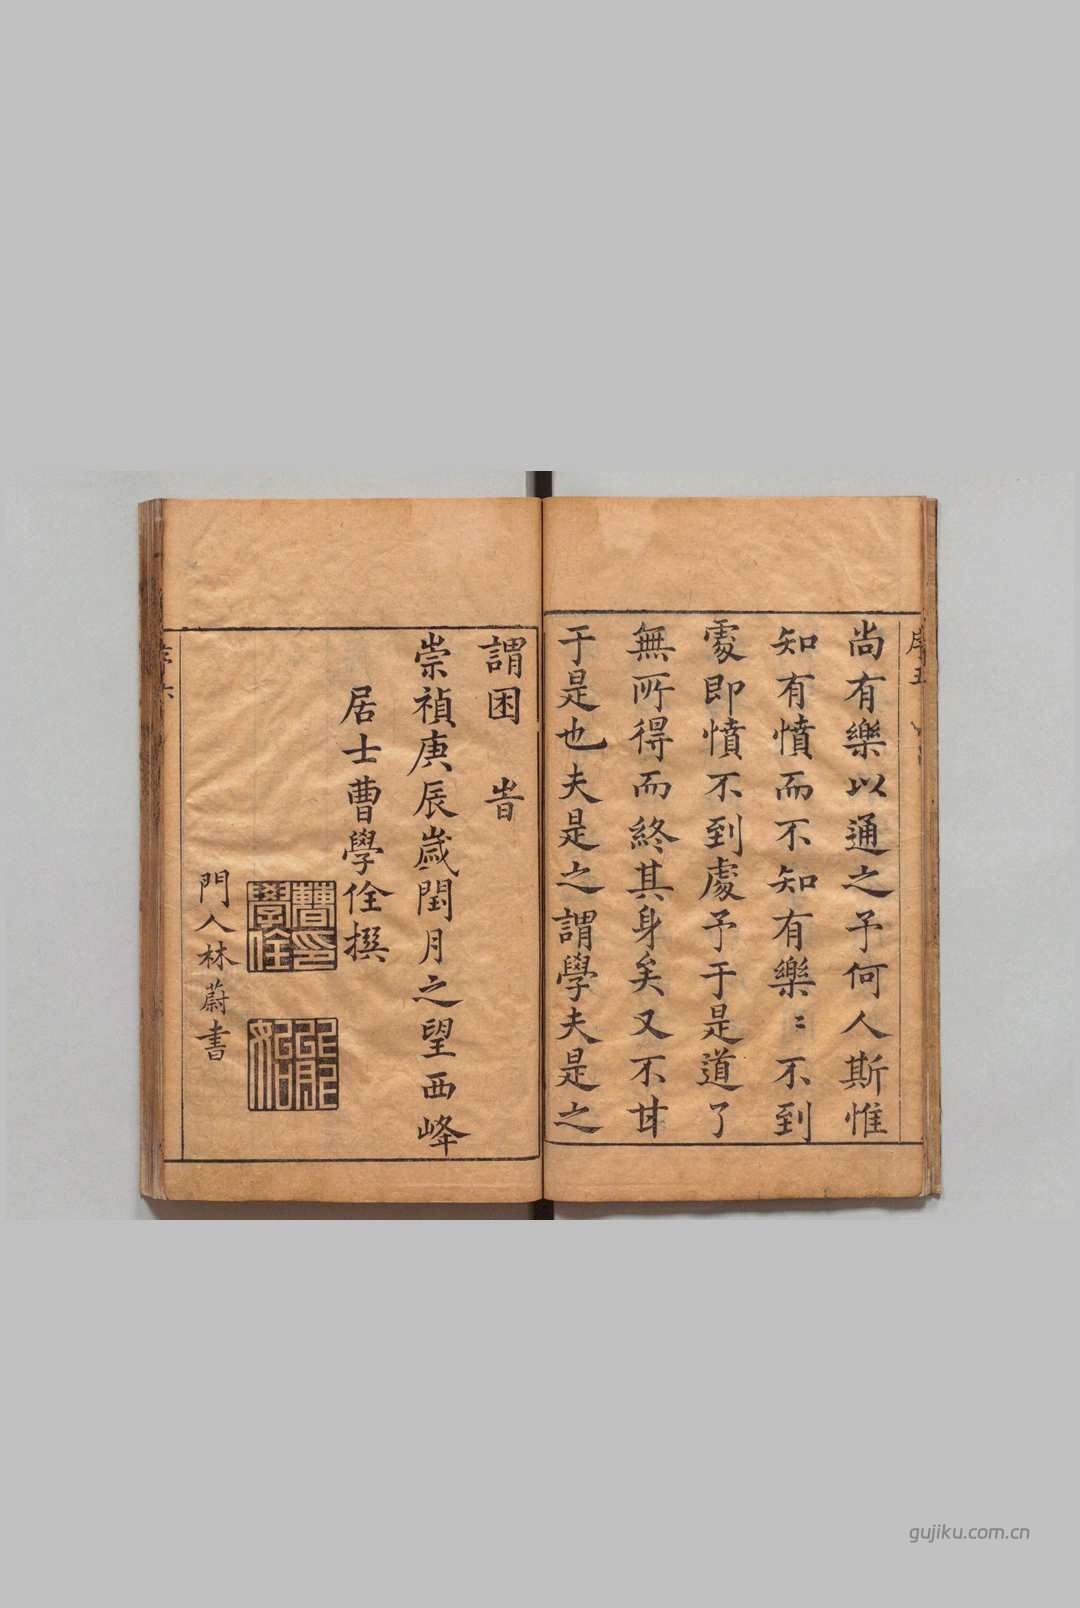 尚有樂以通之予何人斯惟
知有憤而不知有樂〻不到
處即憤不到處予于是道了
無所得而終其身矣又不甘
于是也夫是之謂學夫是之
謂困 旹
崇禎庚辰歲閏月之望西峰
居士曹學佺撰
曹學佺印
門人林蔚書
序五
gujiku.com.cn